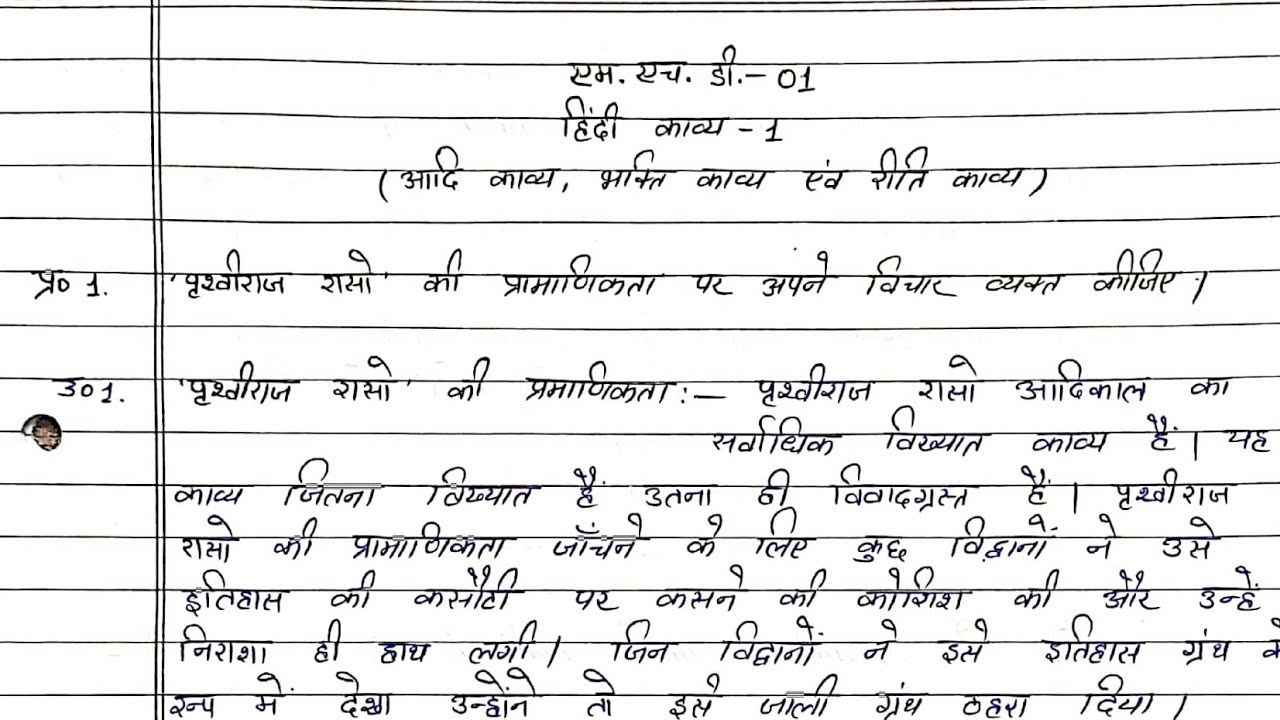 एम. एच. डी.- 01
हिंदी काव्य - 1
(आदि काव्य, भक्ति काव्य एंव रीति काव्य)
प्र० 1. 'पृथ्वीराज रासो' की प्रामाणिकता पर अपने विचार व्यक्त कीजिए।
उ०1. 'पृथ्वीराज रासो' की प्रमाणिकता :- पृथ्वीराज रासो आदिकाल का
सर्वाधिक विख्यात काव्य हैं। यह
काव्य जितना विख्यात हैं उतना ही विवादग्रस्त हैं। पृथ्वीराज
रासो की प्रामाणिकता जाँचने के लिए कुछ विद्वानों ने उसे
इतिहास की कसौटी पर कसने की कोशिश की और उन्हें
निराशा ही हाथ लगी। जिन विद्वानों ने इसे इतिहास ग्रंथ के
रूप में देखा उन्होंने तो इसे जाली ग्रंथ ठहरा दिया।